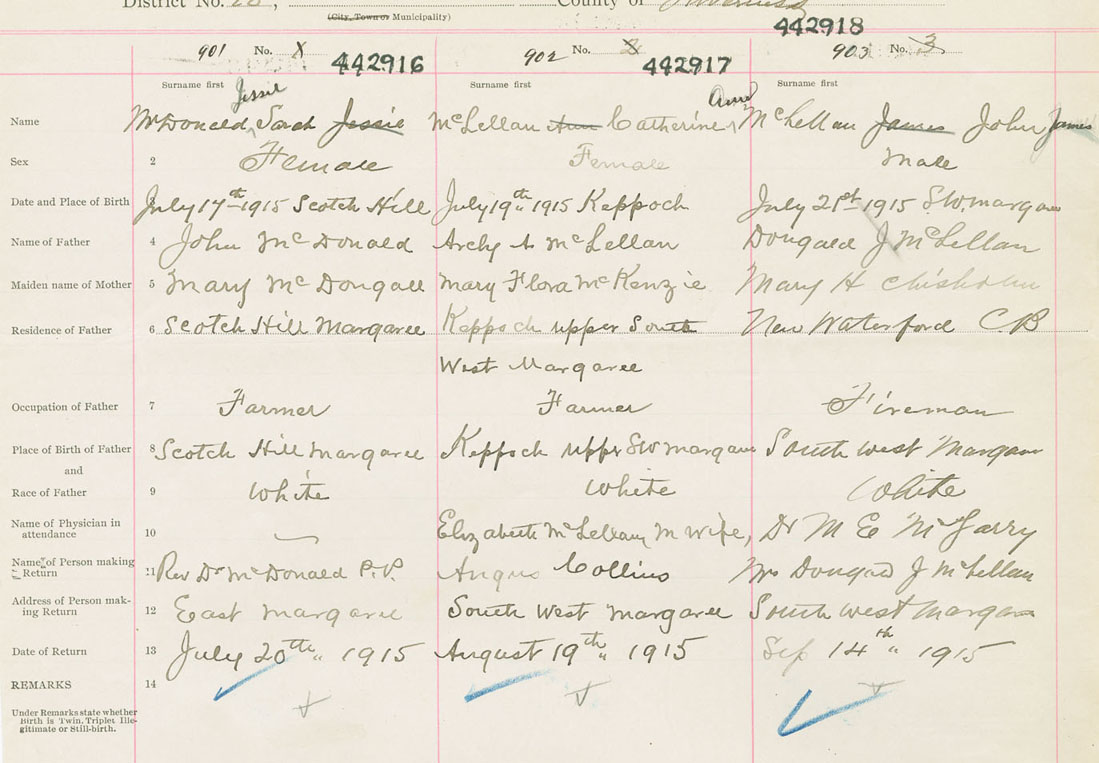 District No. 28, County of Inverness
(City, Town or Municipality)
442918
901 No. X 442916 902 No. 2 442917 903 No. 3
Surname first Surname first Surname first
Jessie Ann
Name McDonald, Sarah Jessie McLellan Ann Catherine McLellan James John James
Sex 2 Female Female Male
Date and Place of Birth July 17th 1915 Scotch Hill July 19th 1915 Keppoch July 21st 1915 S.W. Margaree
Name of Father 4 John McDonald Archy A McLellan Dougald J McLellan
Maiden name of Mother 5 Mary McDougall Mary Flora McKenzie Mary H Chisholm
Residence of Father 6 Scotch Hill Margaree Keppoch upper South New Waterford CB
West Margaree
Occupation of Father 7 Farmer Farmer Fireman
Place of Birth of Father 8 Scotch Hill Margaree Keppoch upper SW Margaree South West Margaree
and
Race of Father 9 White White White
Name of Physician in
attendance 10 Elizabeth McLellan M wife, Dr M E McGarry
Name of Person making
Return 11 Rev Dr McDonald P.P. Angus Collins Mrs Dougald J McLellan
Address of Person mak-
ing Return 12 East Margaree South West Margaree South West Margaree
Date of Return 13 July 20th 1915 August 19th 1915 Sep 14th 1915
REMARKS 14
Under Remarks state whether
Birth is Twin, Triplet Ille-
gitimate or Still-birth.